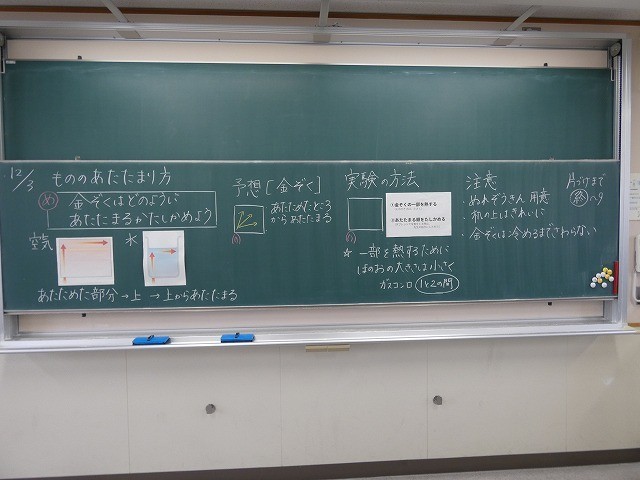 12/3 もののあたたまり方
め 金ぞくはどのように
あたたまるかたしかめよう
空気 水
あたためた部分→上 →上からあたたまる
予想[金ぞく]
あたためたところ
からあたたまる
実験の方法
①金ぞくの一部を熱する
②あたたまる順をたしかめる
* 一部を熱するために
ほのおの大きさは小さく
ガスコンロ 1と2の間
注意
・ぬれぞうきん 用意
・机の上はきれいに
・金ぞくは冷めるまでさわらない
片づけまで
終